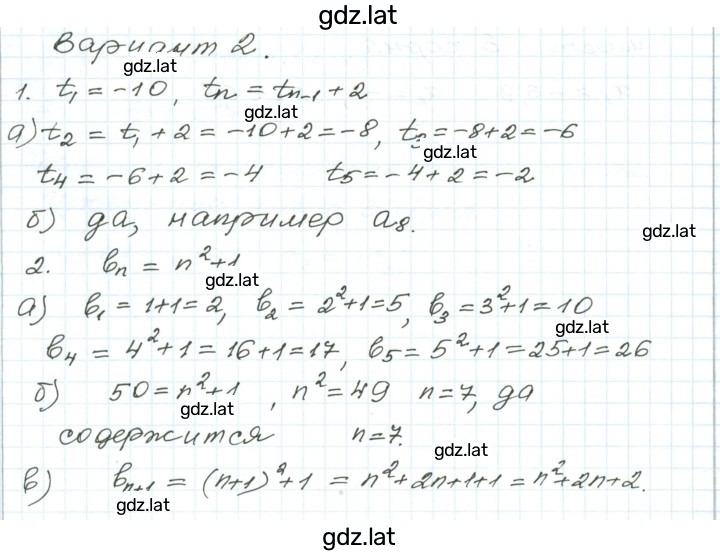 gdz.lat
Вариант 2.
gdz.lat
1. t₁ = -10, tₙ = tₙ₋₁ + 2
gdz.lat
а) t₂ = t₁ + 2 = -10+2 = -8, t₃ = -8+2 = -6
gdz.lat
t₄ = -6+2 = -4 t₅ = -4+2 = -2
б) да, например a₈.
gdz.lat
2. bₙ = n²+1
gdz.lat
а) b₁ = 1+1=2, b₂ = 2²+1=5, b₃ = 3²+1=10
gdz.lat
b₄ = 4²+1 = 16+1=17, b₅ = 5²+1=25+1=26
б) 50=n²+1, n²=49 n=7, да
gdz.lat
содержится n=7.
gdz.lat
в) bₙ₊₁ = (n+1)²+1 = n²+2n+1+1 = n²+2n+2.
gdz.lat
gdz.lat